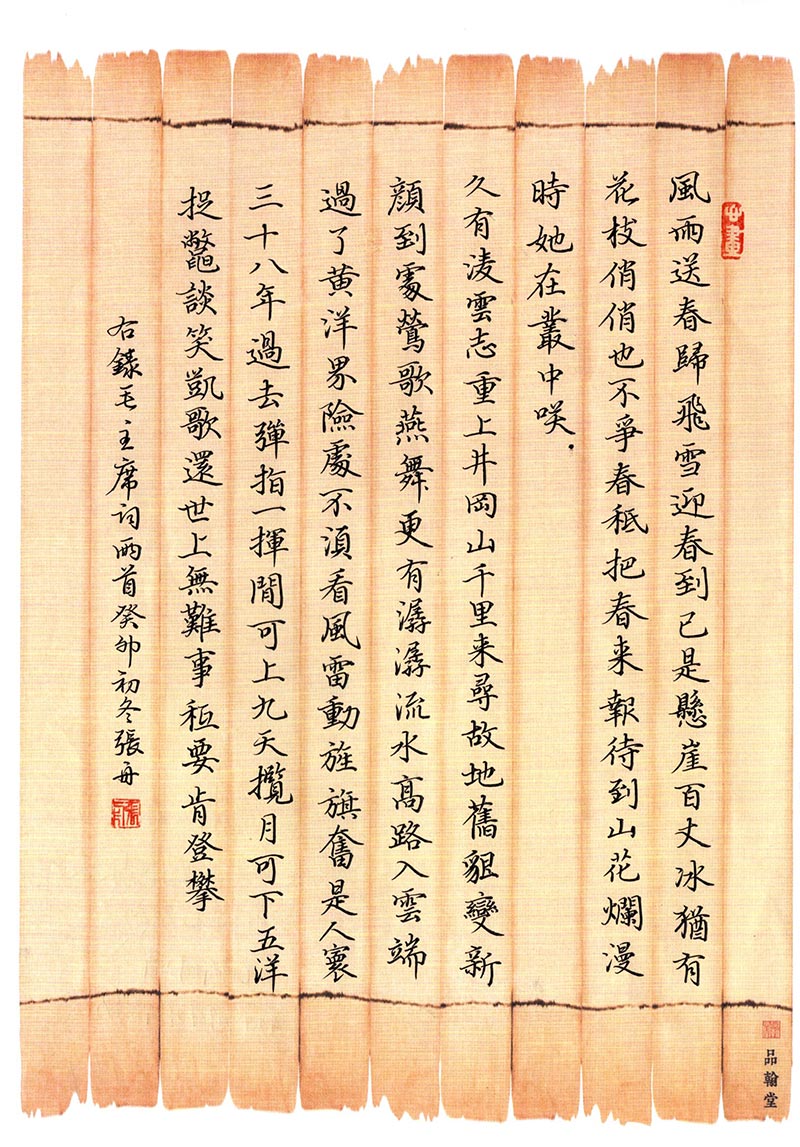 風雨送春歸飛雪迎春到已是懸崖百丈冰猶有
花枝俏俏也不爭春秖把春来報待到山花爛漫
時她在叢中咲
久有淩雲志重上井岡山千里来尋故地舊貌變新
顔到處鶯歌燕舞更有潺潺流水高路入雲端
過了黄洋界險處不須看風雷動旌旗奮是人寰
三十八年過去彈指一揮間可上九天攬月可下五洋
捉鼈談笑凱歌還世上無難事秖要肯登攀
右錄毛主席詞兩首癸卯初冬張舟
品翰堂